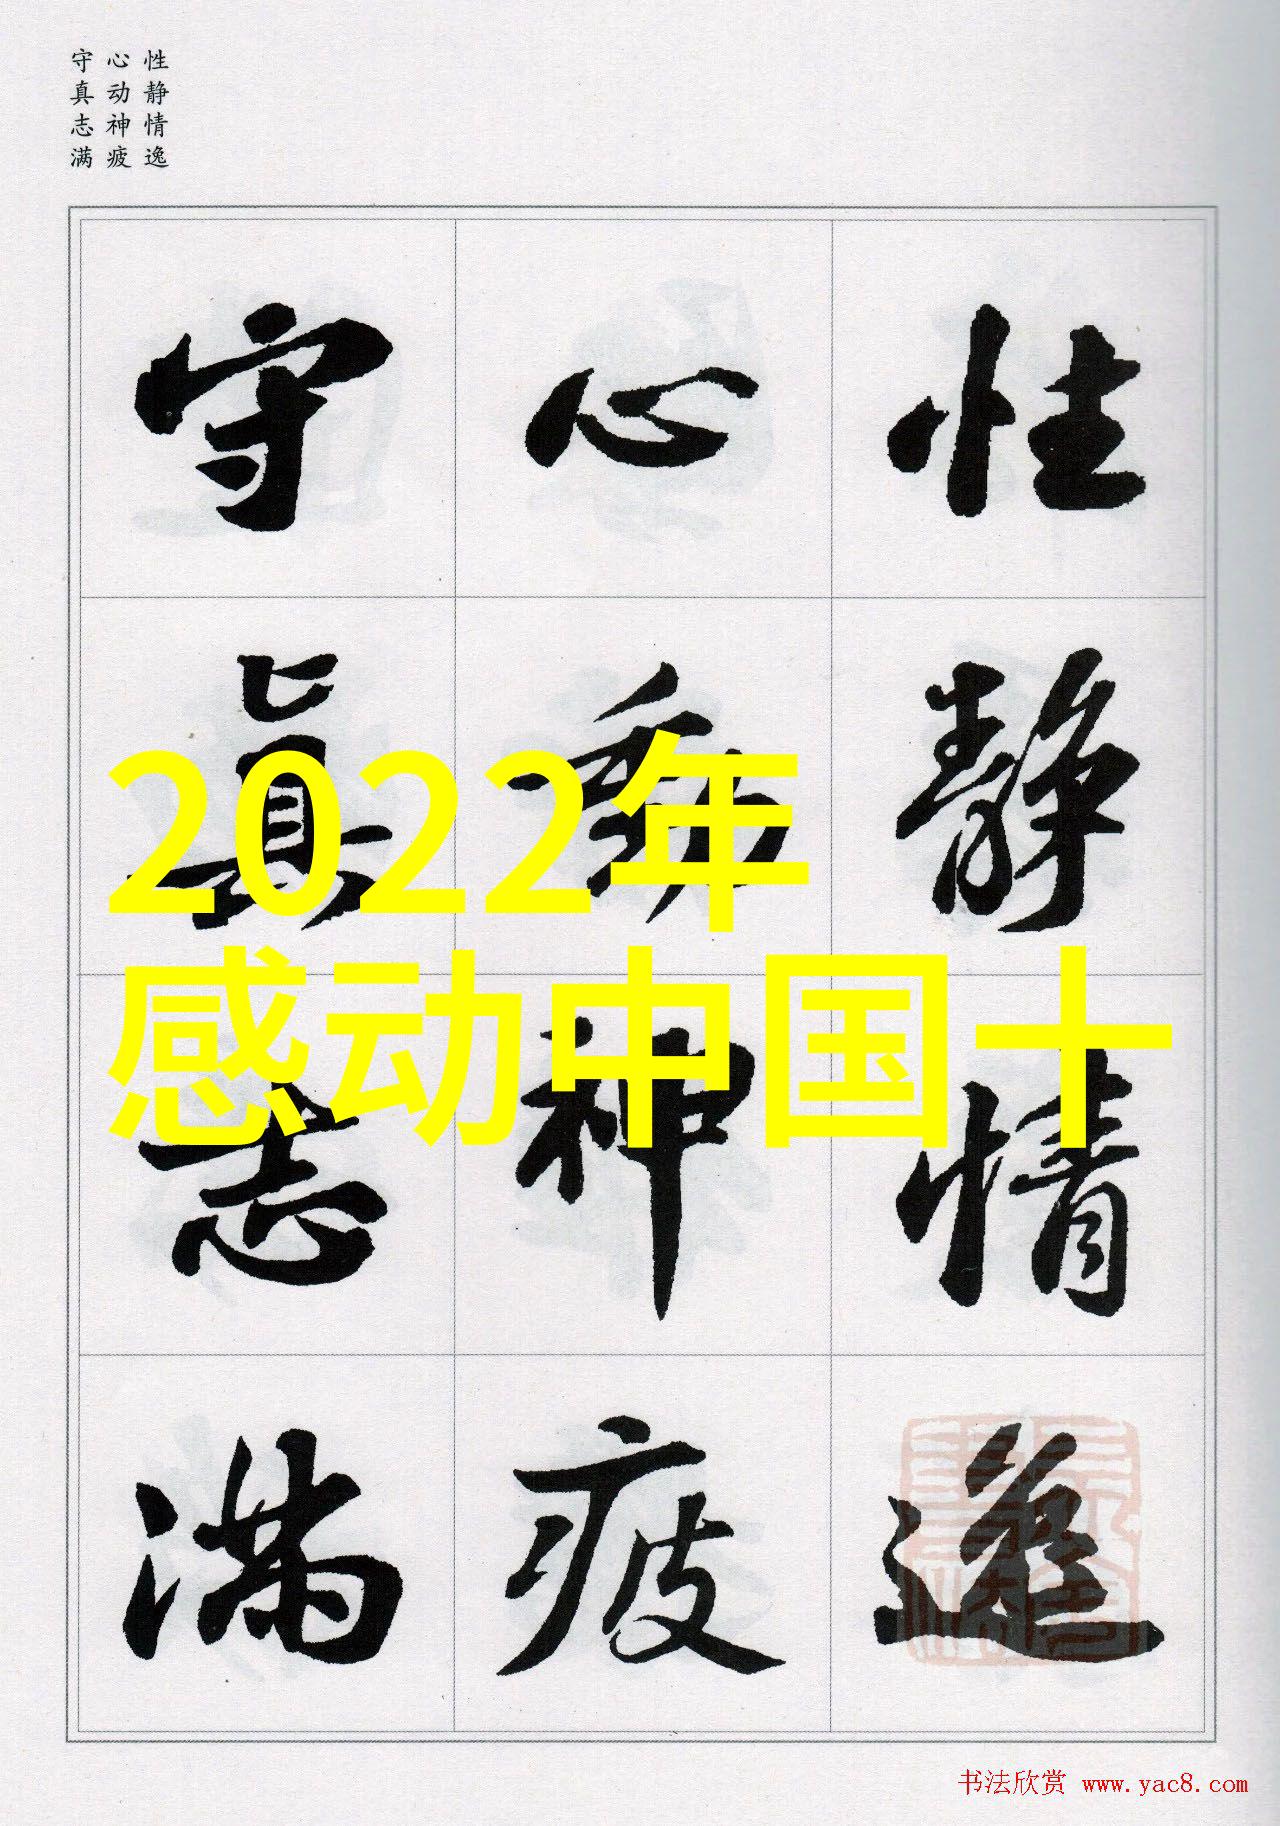 性静情逸
心动神疲
守真志满
性静情逸
心動神疲
守真志满
2022年
感动中国十
书法欣赏 www.yac8.com